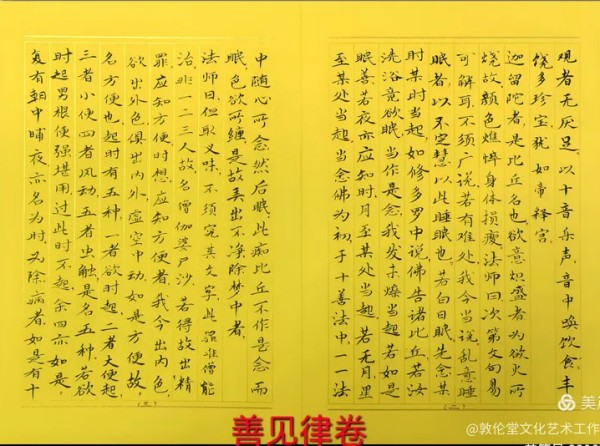 观者无厌足。以十音乐声，音中唤饮食，丰
饶多珍宝，犹如帝释宫。
迦留陀者，是比丘名也。欲意炽盛者，为欲火所
烧故，颜色憔悴身体损瘦。法师曰：次第文句易
可解耳，不须广说，若有难处我今当说。乱意睡
眠者，以不定慧以此睡眠也。若白日眠先念某
时某时当起，如修多罗中说，佛告诸比丘：若汝
洗浴竟欲眠，当作是念，我发未燥当起。若如是
眠善，若夜亦应知时，月至某处当起，若无月，星
至某处当起，当念佛为初，于十善法中，一一法
(二)
中随心所念然后眠，此痴比丘不作是念而
眠，色欲所缠，是故弄出不净，除梦中者，
法师曰，但取义味，不须究其文字，此罪唯僧能
治，非一二三人，故名僧伽婆尸沙。若得故出精
罪，应知方便时想，应知方便者，我今出内色，
欲出外色，俱出内外，虚空中动，如是方便故，
名方便也。起时有五种，一者欲时起，二者大便起，
三者小便，四者风动，五者虫触，是名五种。若欲
时起，男根便强堪用，过此时不起，余四亦如是，
复有朝中晡夜亦名为时，又除病者，如是有十
(三)
善见律卷
@敦伦堂文化艺术工作